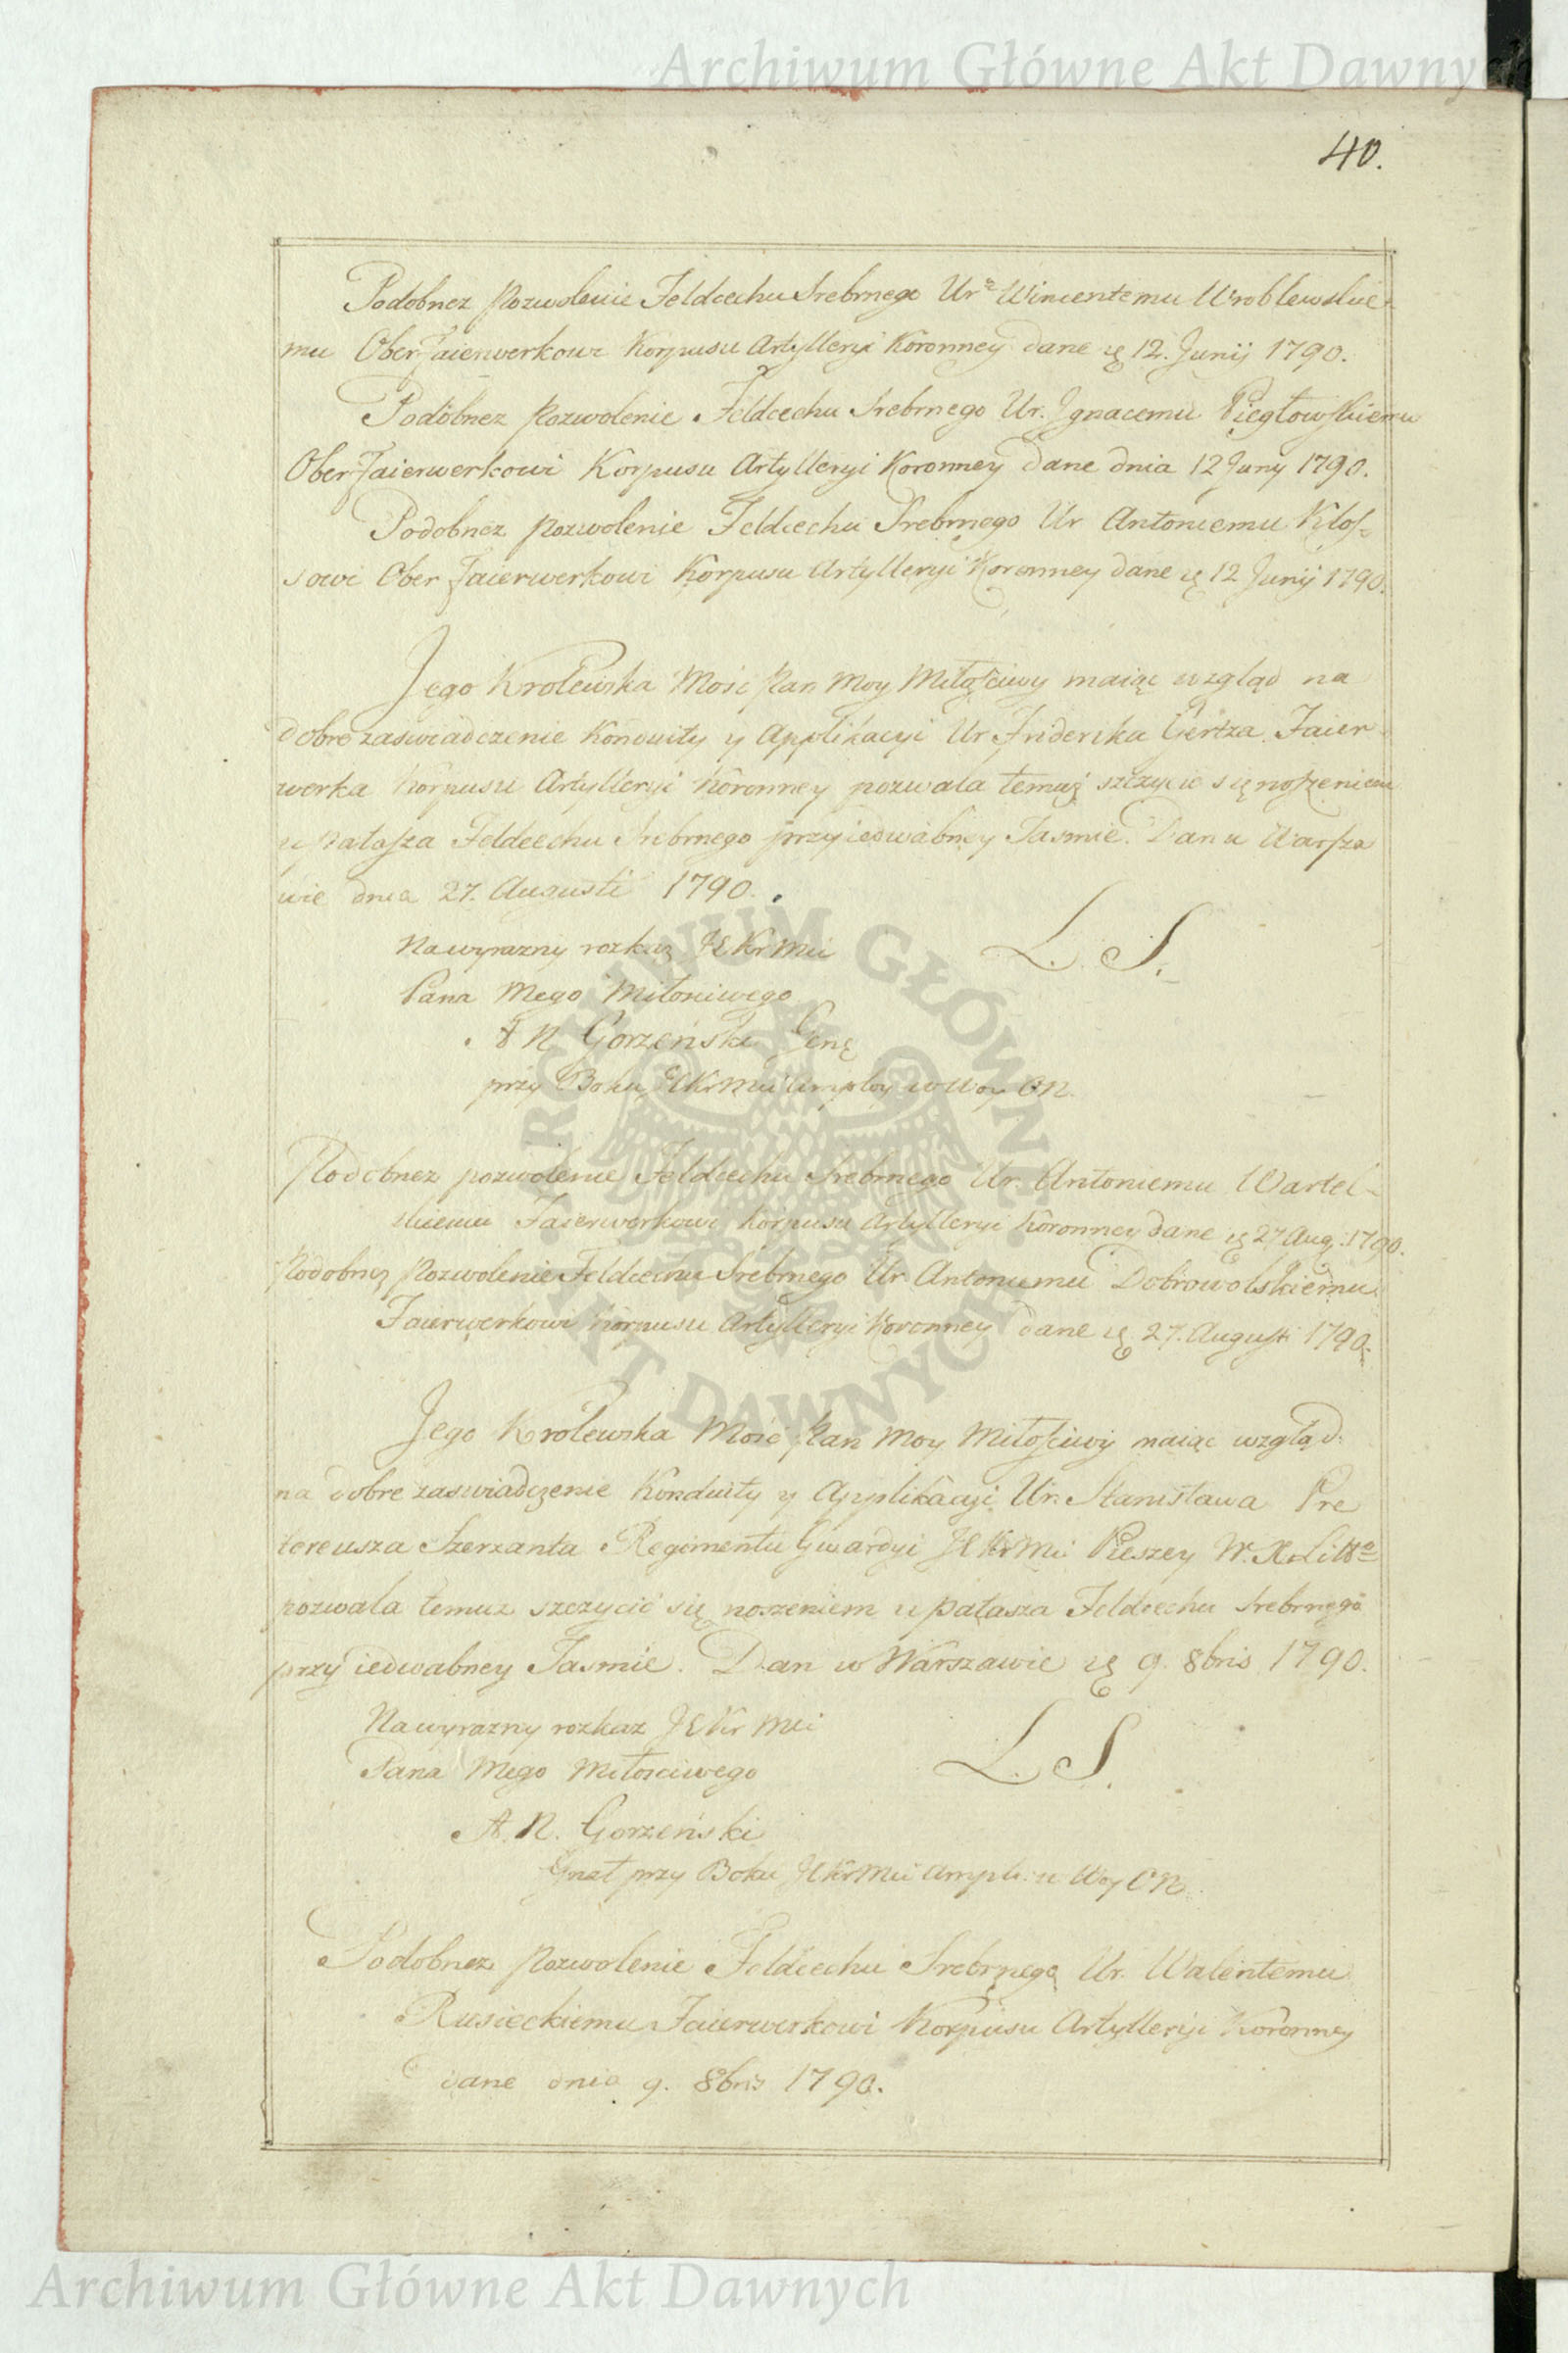 Archiwum Główne Akt Dawnych
40.
Podobnez Pozwolenie Feldcechu Srebrnego Ur. Wincentemu Wroblewskie-
mu Ober Faierwerkowi Korpusu Artylleryi Koronney dane d. 12. Junij 1790.
Podobnez Pozwolenie Feldcechu Srebrnego Ur. Jgnacemu Piegłowskiemu
Ober Faierwerkowi Korpusu Artylleryi Koronney dane dnia 12 Juny 1790.
Podobnez Pozwolenie Feldcechu Srebrnego Ur Antoniemu Klos-
sowi Ober Faierwerkowi Korpusu Artylleryi Koronney dane d. 12 Junij 1790.
Jego Krolewska Mość Pan Moy Miłościwy maiąc wzgląd na
dobre zaswiadczenie Konduity y Applikacyi Ur. Friderika Gertza Faier-
werka Korpusu Artylleryi Koronney pozwala temuz szczycić się noszeniem
u Pałasza Feldcechu Srebrnego przy iedwabney Tasmie. Dan w Warsza
wie dnia 27. Augusti 1790.
Na wyrazny rozkaz JK Kr Mci
Pana Mego Miłosciwego
L. S.
A N Gorzeński Gene
przy Boku JK Kr Mci Amploy w Woy ON.
Podobnez pozwolenie Feldcechu Srebrnego Ur. Antoniemu Wartel-
skiemu Faierwerkowi Korpusu Artylleryi Koronney dane d. 27 Aug. 1790.
Podobnez Pozwolenie Feldcechu Srebrnego Ur Antoniemu Dobrowolskiemu
Faierwerkowi Korpusu Artylleryi Koronney dane d. 27. Augusti 1790.
Jego Królewska Mość Pan Moy Miłościwy maiąc wzgląd
na dobre zaswiadczenie Konduity y Applikacyi Ur. Stanisława Pre
tereusza Szerzanta Regimentu Gwardyi JK Kr Mci Pieszey W. X. Litto
pozwala temuz szczycić się noszeniem u Pałasza Feldcechu Srebrnego
przy iedwabney Tasmie. Dan w Warszawie d. 9. 8bris 1790.
Na wyrazny rozkaz JK Kr Mci
Pana Mego Miłosciwego
L. S.
A. N. Gorzeński
Gnał przy Boku JK Kr Mci Ampl: w Woy ON
Podobnez Pozwolenie Feldcechu Srebrnego Ur. Walentemu
Rusieckiemu Faierwerkowi Korpusu Artylleryi Koronney
dane dnia 9. 8bris 1790.
ARCHIWUM GŁÓWNE AKT DAWNYCH
Archiwum Główne Akt Dawnych